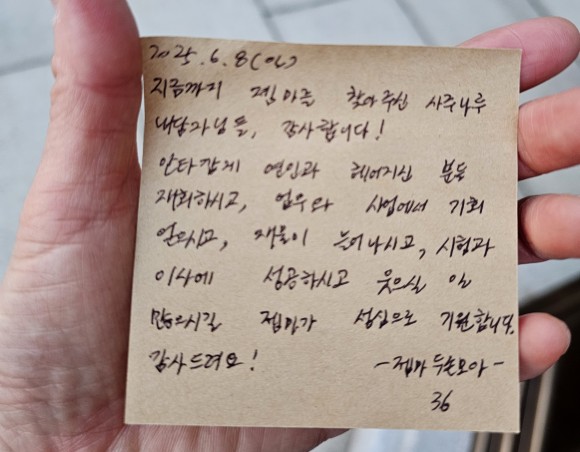 2025.6.8(일)
지금까지 젬마를 찾아주신 사주나루
내담자님들, 감사합니다!
안타깝게 연인과 헤어지신 분들
재회하시고, 업무와 사업에서 기회
얻으시고, 재물이 늘어나시고, 시험과
이사에 성공하시고 웃으실 일
많으시길 젬마가 성심으로 기원합니다.
감사드려요!
-젬마 두손모아-
36